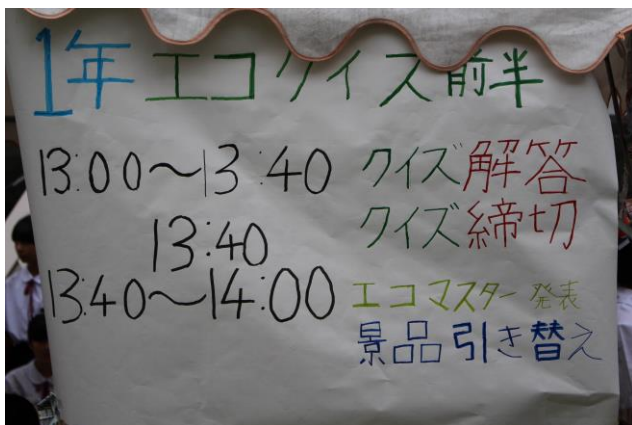 1年 エコクイズ前半
13:00〜13:40 クイズ解答
13:40 クイズ締切
13:40〜14:00 エコマスター発表
景品引き替え